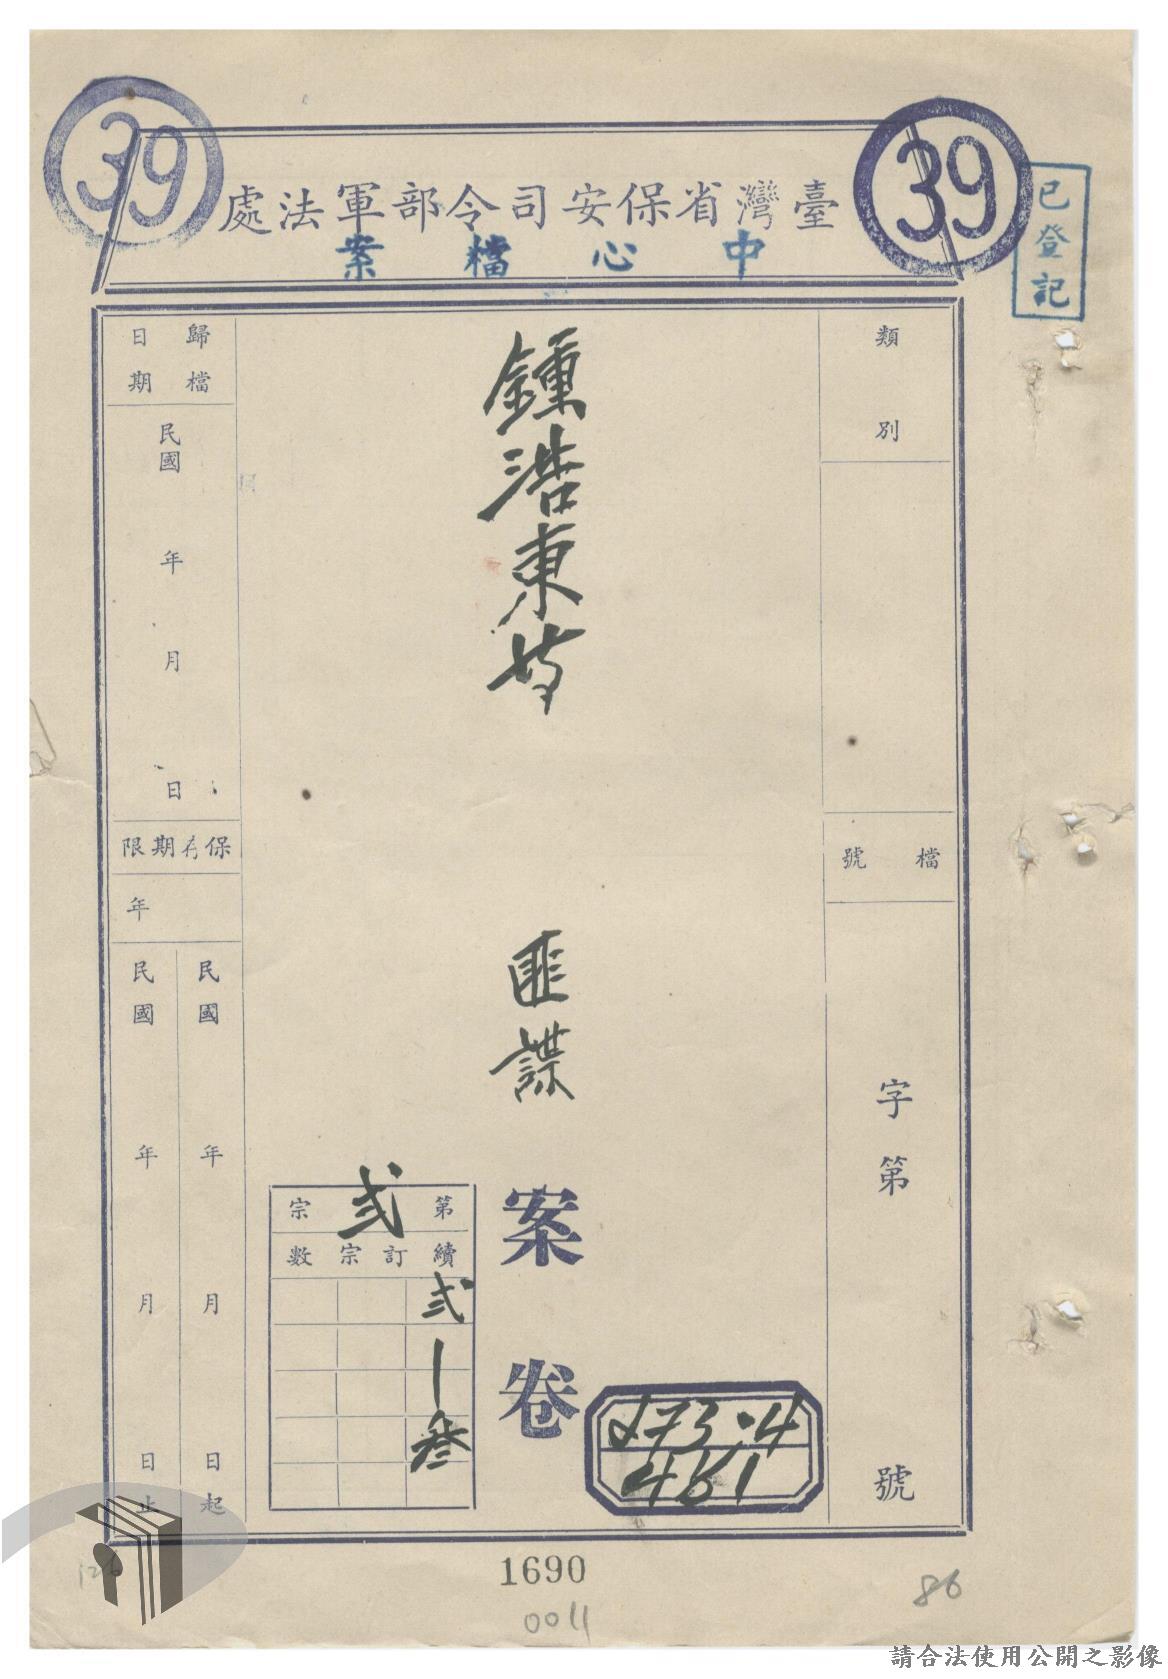 39
39
臺灣省保安司令部軍法處
中心檔案
已登記
類別
檔號
字第號
鍾浩東等
匪諜
案卷
第貳宗
續訂宗數
貳
|
叄
273.4
451
歸檔日期
民國年月日
保存期限
年
民國年月日起
民國年月日止
1690
0011
86
請合法使用公開之影像